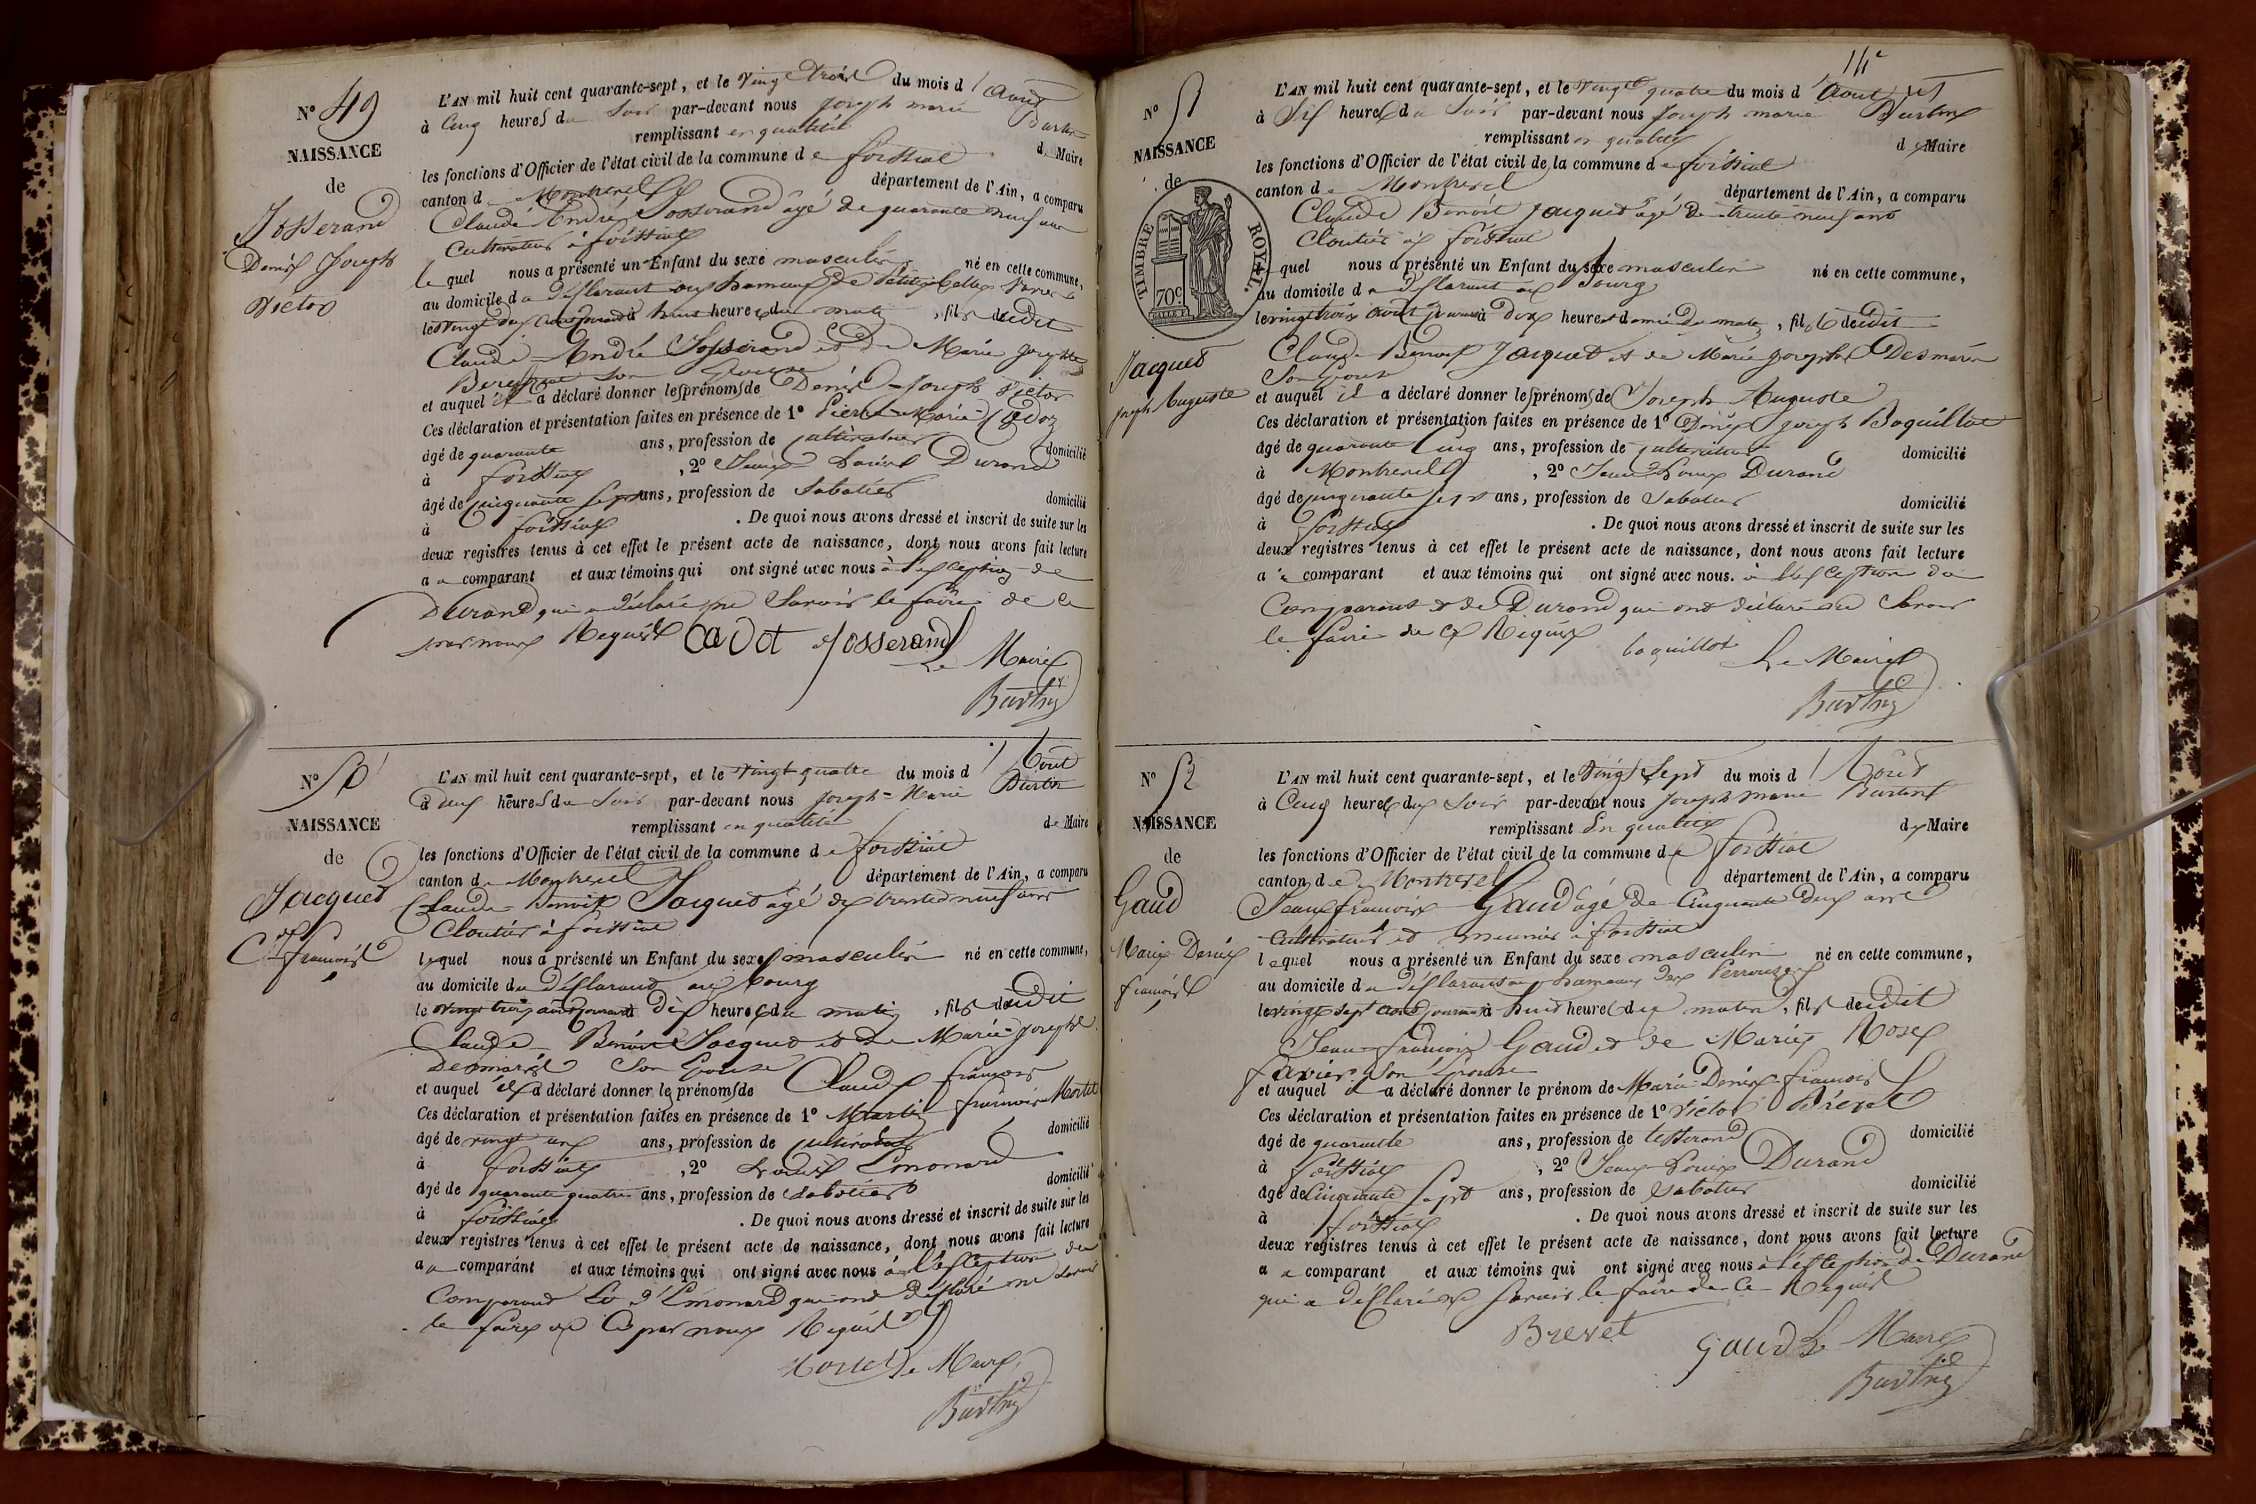 N° 49
NAISSANCE
de
Josserand
Denis Joseph
Victor
L'AN mil huit cent quarante-sept, et le vingt trois du mois d'Aout
à Cinq heures du Soir par-devant nous Joseph marie Burtin
remplissant en qualité de Maire
les fonctions d'Officier de l'état civil de la commune de foissiat
canton de Montrevel département de l'Ain, a comparu
Claude André Josserand âgé de quarante neuf ans
Cultivateur à foissiat
lequel nous a présenté un Enfant du sexe masculin né en cette commune,
au domicile du déclarant au hameau de
le vingt deux courant à huit heures du matin, fils dudit
Claude André Josserand et de Marie Josephte
son épouse
et auquel il a déclaré donner les prénoms de Denis Joseph Victor
Ces déclaration et présentation faites en présence de 1° Pierre Marie Cadoz
âgé de quarante ans, profession de cultivateur domicilié
à foissiat, 2° Jean Louis Durand
âgé de cinquante sept ans, profession de Sabotier domicilié
à foissiat. De quoi nous avons dressé et inscrit de suite sur les
deux registres tenus à cet effet le présent acte de naissance, dont nous avons fait lecture
au comparant et aux témoins qui ont signé avec nous à l'exception de
Durand qui a déclaré ne Savoir le faire de ce
par nous Requis Cadot Josserand
Le Maire
Burtin
N° 50
NAISSANCE
de
Jacquet
Cde francois
L'AN mil huit cent quarante-sept, et le vingt quatre du mois d'Aout
à deux heures du Soir par-devant nous Joseph Marie Burtin
remplissant en qualité de Maire
les fonctions d'Officier de l'état civil de la commune de foissiat
canton de Montrevel département de l'Ain, a comparu
Claude Benoit Jacquet âgé de trente neuf ans
Cloutier à foissiat
lequel nous a présenté un Enfant du sexe masculin né en cette commune,
au domicile du déclarant au bourg
le vingt trois août courant à dix heures du matin, fils dudit
Claude Benoit Jacquet et de Marie Josephe
Desmaris Son Epouse
et auquel il a déclaré donner le prénoms de Claude francois
Ces déclaration et présentation faites en présence de 1° Martin francois Mortel
âgé de vingt un ans, profession de cultivateur domicilié
à foissiat, 2° Louis Emonard
âgé de quarante quatre ans, profession de Sabotier domicilié
à foissiat. De quoi nous avons dressé et inscrit de suite sur les
deux registres tenus à cet effet le présent acte de naissance, dont nous avons fait lecture
au comparant et aux témoins qui ont signé avec nous à l'exception du
Comparant et d'Emonard qui ont déclaré ne savoir
le faire de ce par nous Requis
Mortel Le Maire
Burtin
14e
N° 51
NAISSANCE
de
TIMBRE ROYAL.
70c.
Jacquet
Joseph Auguste
L'AN mil huit cent quarante-sept, et le vingt quatre du mois d'Aout
à Six heures du Soir par-devant nous Joseph marie Burtin
remplissant en qualité de Maire
les fonctions d'Officier de l'état civil de la commune de foissiat
canton de Montrevel département de l'Ain, a comparu
Claude Benoit Jacquet âgé de trente neuf ans
Cloutier à foissiat
lequel nous a présenté un Enfant du sexe masculin né en cette commune,
au domicile du déclarant au bourg
le vingt trois août courant à dix heures et demie du matin, fils dudit
Claude Benoit Jacquet et de Marie Josephe Desmaris
Son Epouse
et auquel il a déclaré donner les prénoms de Joseph Auguste
Ces déclaration et présentation faites en présence de 1° Denis Joseph Boquillot
âgé de quarante Cinq ans, profession de cultivateur domicilié
à Montrevel, 2° Jean Louis Durand
âgé de cinquante sept ans, profession de Sabotier domicilié
à foissiat. De quoi nous avons dressé et inscrit de suite sur les
deux registres tenus à cet effet le présent acte de naissance, dont nous avons fait lecture
au comparant et aux témoins qui ont signé avec nous. à l'exception du
Comparant et de Durand qui ont déclaré ne Savoir
le faire de ce Requis
boquillot Le Maire
Burtin
N° 52
NAISSANCE
de
Gaud
Marie Denis
francois
L'AN mil huit cent quarante-sept, et le vingt Sept du mois d'Aout
à Cinq heures du Soir par-devant nous Joseph marie Burtin
remplissant En qualité de Maire
les fonctions d'Officier de l'état civil de la commune de foissiat
canton de Montrevel département de l'Ain, a comparu
Jean francois Gaud âgé de Cinquante deux ans
Cultivateur et meunier à foissiat
lequel nous a présenté un Enfant du sexe masculin né en cette commune,
au domicile du déclarant au hameau des
le vingt sept août courant à huit heures du matin, fils dudit
Jean francois Gaud et de Marie Rose
favier Son Epouse
et auquel il a déclaré donner le prénom de Marie Denis francois
Ces déclaration et présentation faites en présence de 1° Victor Brevet
âgé de quarante ans, profession de tisserand domicilié
à foissiat, 2° Jean Louis Durand
âgé de Cinquante Sept ans, profession de Sabotier domicilié
à foissiat. De quoi nous avons dressé et inscrit de suite sur les
deux registres tenus à cet effet le présent acte de naissance, dont nous avons fait lecture
au comparant et aux témoins qui ont signé avec nous à l'exception de Durand
qui a déclaré ne Savoir le faire de ce Requis
Brevet Gaud Le Maire
Burtin